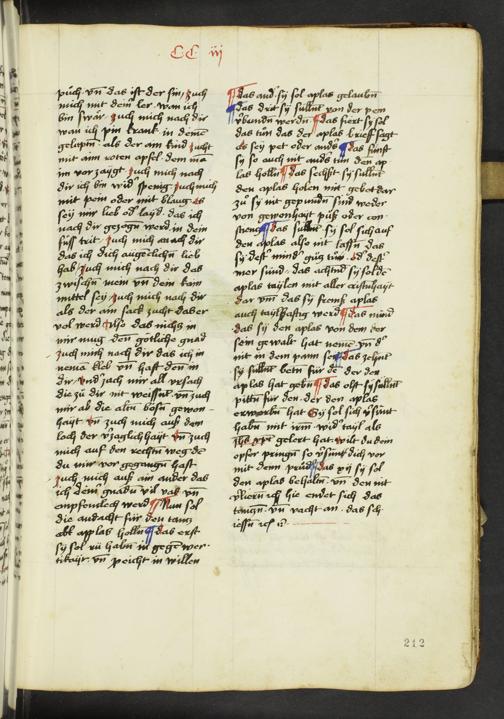 CC iij
puch vn̄ das ist der sin zuch
mich mit dem ler wan ich
bin swär zuch mich nach dir
wan ich pin krank in deine
gelapn̄ als der am kind zucht
mit aim roten apfel dem ma
im vor zaygt zuch mich nach
dir ich bin wid spenig zuch mich
mit pein oder mit klaug es
sey mir lieb od layd das ich
nach dir gezogn werd in dein
süss trit zuch mich nach dir
das ich dich augenclichn̄ lieb
hab zuch mich nach dir das
zwischn̄ mein vn̄ dein kain
mittel sey zuch mich nach dir
als der ain sack zucht das er
vol werd also das nichs in
mir mug den götliche gnad
zuch mich nach dir das ich in
nema kleb vn̄ haft den in
dir vnd zuch mir all vrsach
die zu dir nit weissnt vn̄ zuch
mir ab die altn̄ bosn̄ gewon-
hayt vn̄ zuch mich auss dem
loch der v̈zaglichhayt vn̄ zuch
mich auf den rechtn̄ weg de
du mir vor gegangn hast
zuch mich auss ain ander das
ich dein gnadn vil vas vn̄
enpfenlech werd Nun sol
die andacht für den tanz
abt applas holln̄ das erst
sy sol rü habn̄ in gege wer-
tikayt vn̄ peicht in willen
das and sy sol aplas gelaubn̄
das drit sy sulln̄t von der pein
enbunden werdn̄ das fiert sy sol
das tun das der aplas brieff sagt
es sey pet oder ands das funft
sy so auch nit ands tun den ap
las holln̄ das sechst sy sulln̄t
den aplas holen mit gebet dar
zu sy nit gepundn̄ sind weder
von gewonhayt puss oder con
das sibent sy sol sich auf
den aplas also nit lassn̄ das
sy dest mind gutz tun
mer sund das achtnd sy sold
aplas taylen mit aller cristnhayt
dar vm das sy fremd aplas
auch taylhaftig werd das nind
das sy den aplas von dem der
sein gewalt hat neme vn̄ d
nit in dem pann sey das zehnt
sy sulln̄t betn für den der den
aplas hat gebn̄ das olft sy sulln̄t
pittn̄ für den der den aplas
erworbn̄ hat Sy sol sich v̈sünt
habn̄ mit irm wid tayl als
ihs xp̄s gelert hat wilt du dein
opfer pringn̄ so v̈sün dich vor
mit deim prüd das xij sy sol
den aplas behaltn̄ vn̄ den nit
v̈liern ich hie endet sich das
tanzn̄ vn̄ vacht an das sch
iessn̄ 
212